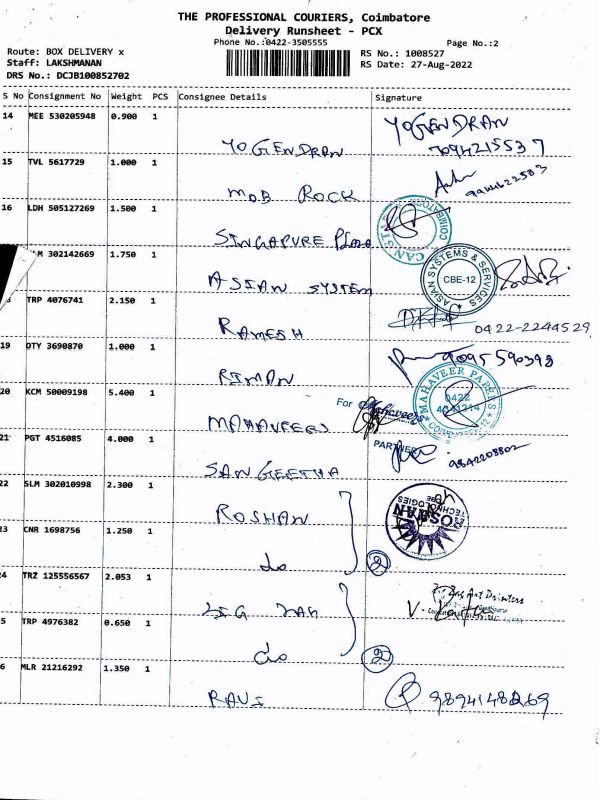 THE PROFESSIONAL COURIERS, Coimbatore
Delivery Runsheet - PCX
Phone No.:0422-3505555
Page No.:2
Route: BOX DELIVERY x
Staff: LAKSHMANAN
DRS No.: DCJB100852702
RS No.: 1008527
RS Date: 27-Aug-2022
S No Consignment No Weight PCS Consignee Details Signature
14 MEE 530205948 0.900 1 YOGENDRAN YOGENDRAN
7094215537
15 TVL 5617729 1.000 1 MOB ROCK
16 LDH 505127269 1.500 1 SINGAPURE COIMBATORE
302142669 1.750 1 ASIAN SYSTEM ASIAN SYSTEMS & SERVICES CBE-12
TRP 4076741 2.150 1 RAMESH 0422-2244529
19 DTY 3690870 1.000 1 RIMAN 9095590398
20 KCM 50009198 5.400 1 MAHAVEERS For Mahaveers MAHAVEER 0422
PARTNER
21 PGT 4516085 4.000 1 SANGEETHA 9842208802
22 SLM 302010998 2.300 1 ROSHAN TECHNOLOGIES
23 CNR 1698756 1.250 1 do 2
24 TRZ 125556567 2.053 1 ZIG ZAG Zig Zag Art Printers
5 TRP 4976382 0.650 1 do 2
6 MLR 21216292 1.350 1 RAVI 9894148269